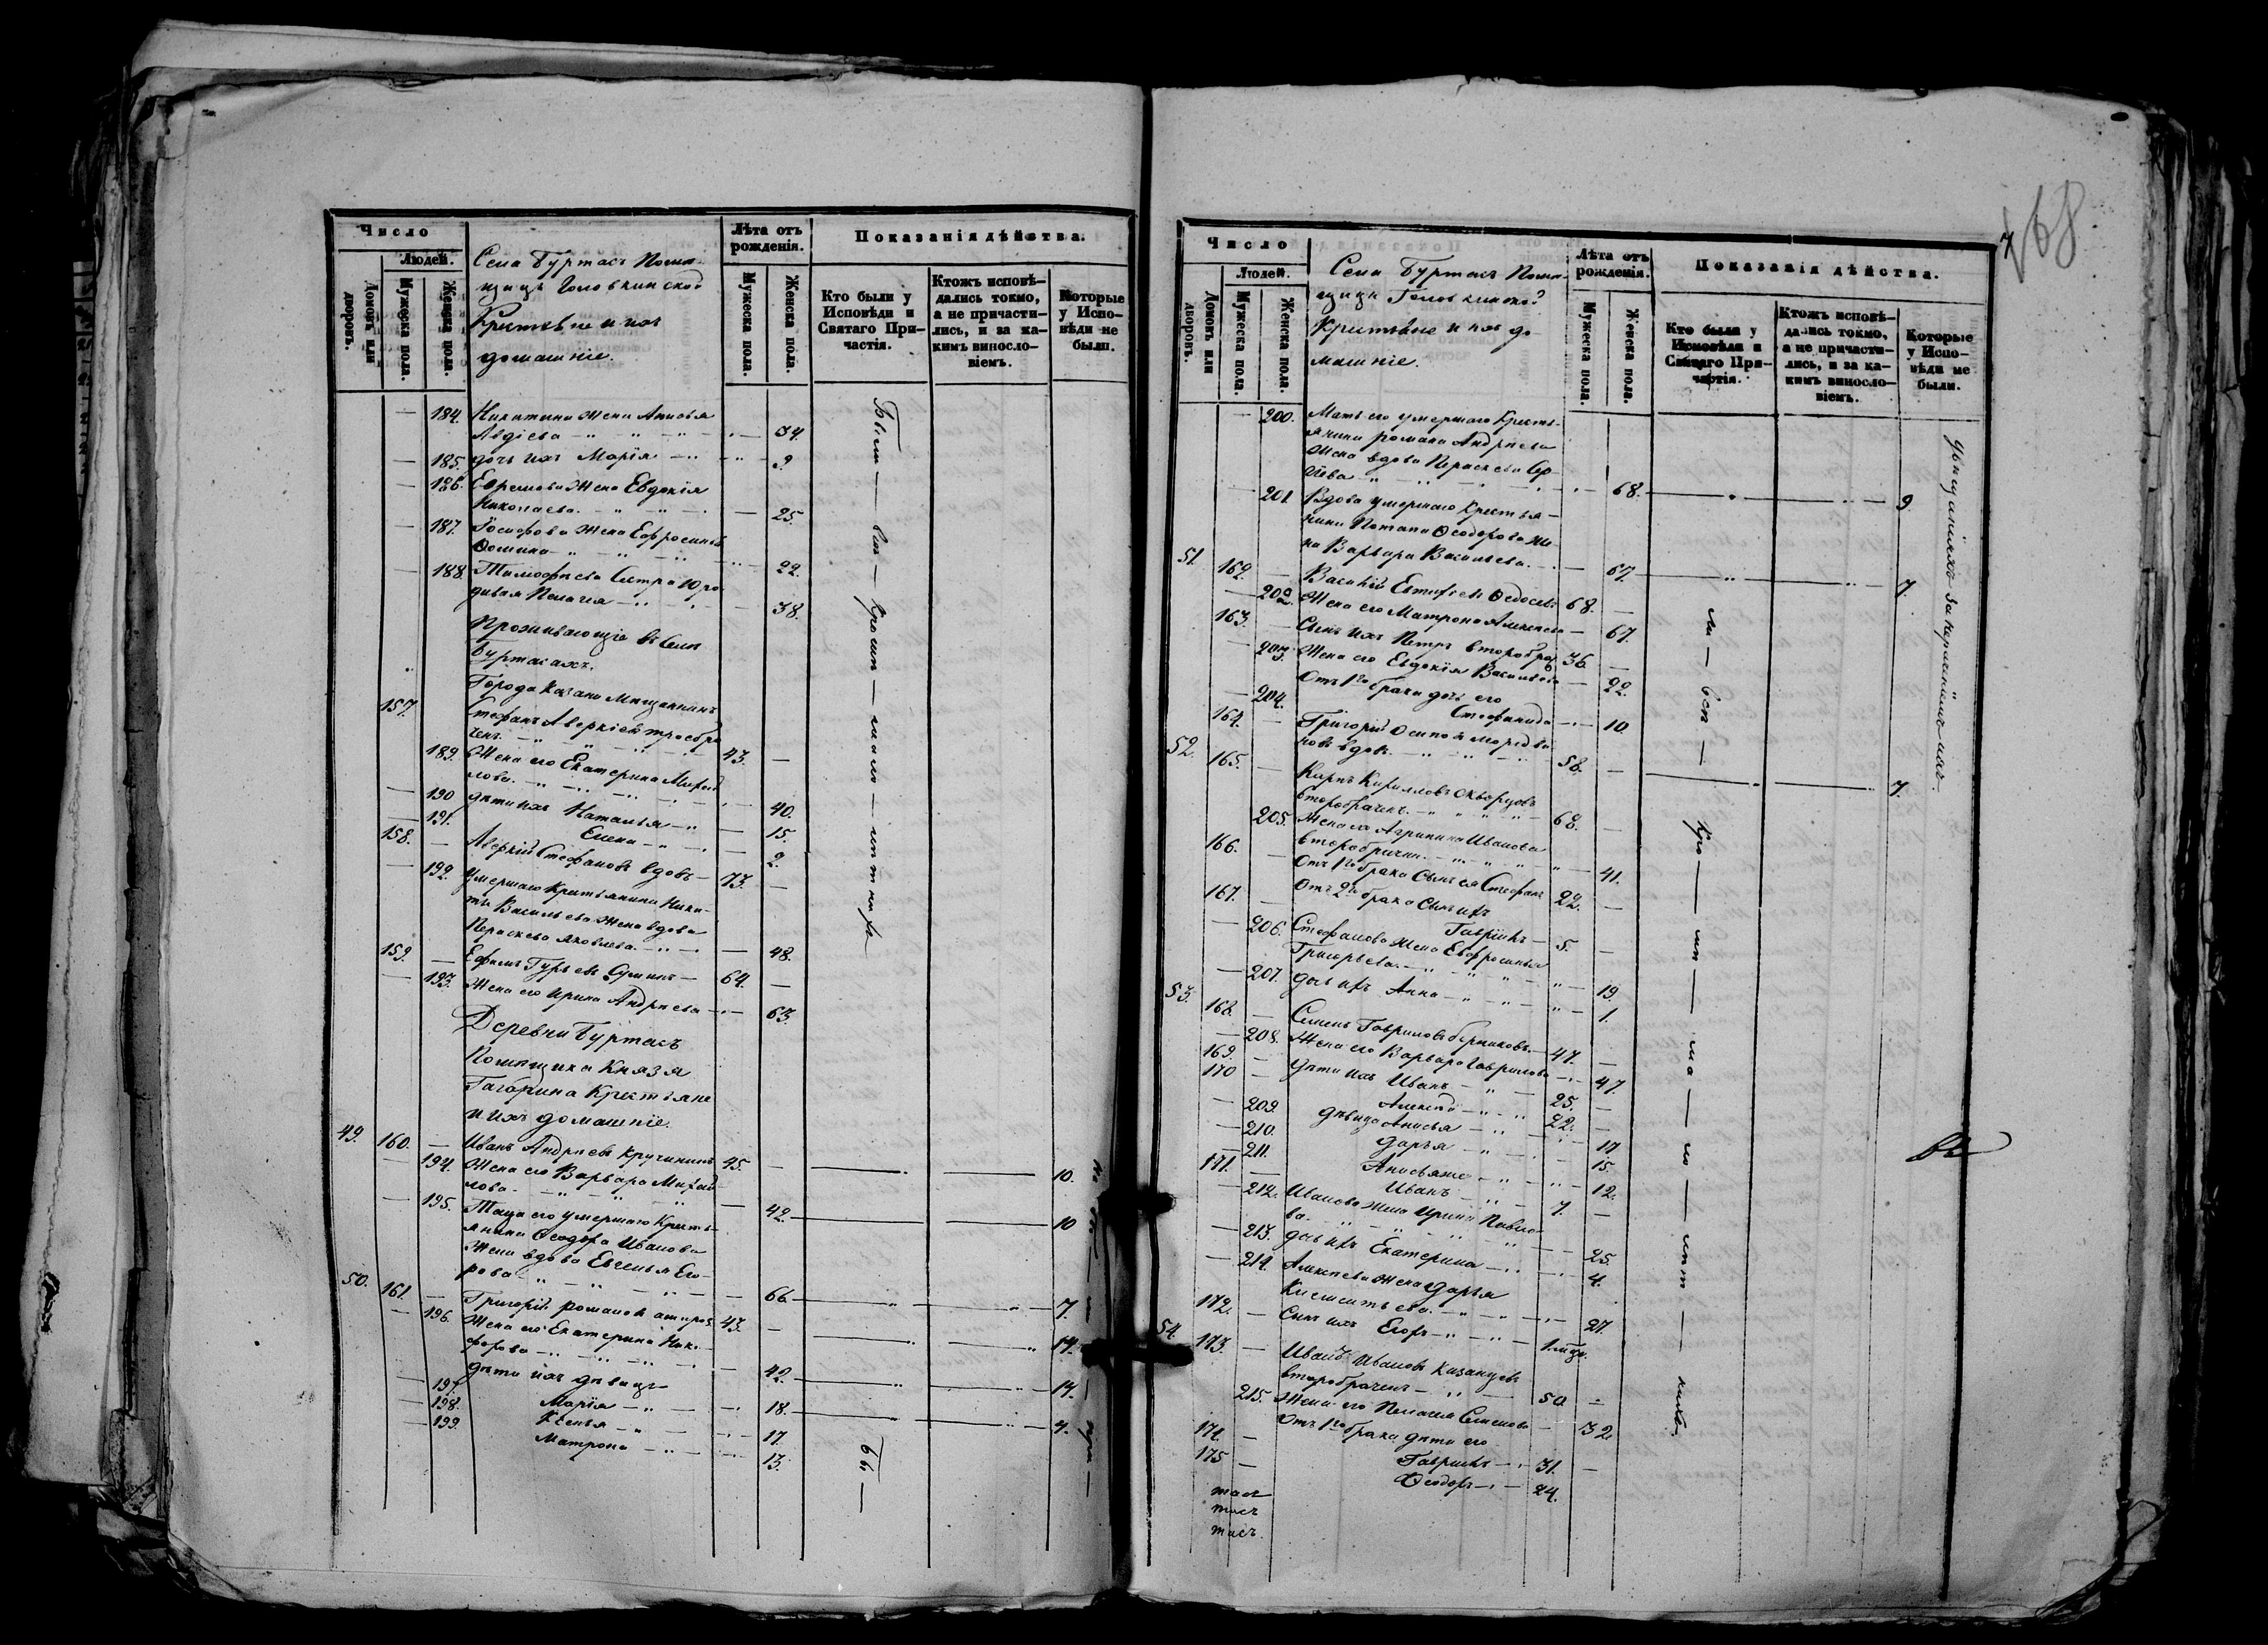 Число
Людей.
Домовъ или дворовъ.
Мужеска пола.
Женска пола.
Села Буртасъ Поме-
щицъ Головкинской
Крестьяне и ихъ
домашніе.
Лѣта отъ рожденія.
Мужеска пола.
Женска пола.
Показанія дѣйства.
Кто были у Исповѣди и Святаго Причастія.
Ктожъ исповѣдались токмо, а не причастились, и за какимъ винословіемъ.
Которые у Исповѣди не были.
184. Никитина жена Анисья
Авдіева 34.
185. дочь ихъ Марія 9
186. Ефремова жена Евдокія
Николаева 25.
187. Іосифова жена Ефросинья
Фомина 22.
188. Тимофеева Сестра Юро-
дивая Пелагія 38.
Проживающіе въ Селѣ
Буртасахъ.
Города Казани Мещанинъ
157. Стефанъ Аверкіевъ троебра-
ченъ 43.
189. Жена его Екатерина Михай-
лова 40.
190 дѣти ихъ Наталья 15.
191. Елена 2.
158. Аверкій Стефановъ вдовъ 73.
192. Умершаго Крестьянина Ники-
ты Васильева жена вдова
Параскева Яковлева 48.
159. Ефимъ Гурьевъ 64.
193. Жена его Ирина Андреева 63.
Деревни Буртасъ
Помещика Князя
Гагарина Крестьяне
и ихъ домашніе.
49. 160. Иванъ Андреевъ Кручининъ 45. 10.
194. Жена его Варвара Михай-
лова 42. 10
195. Теща его умершаго Кресть-
янина Феодора Иванова
Жена вдова Евгенья Его-
рова 66 7.
50. 161. Григорій Романовъ 43. 14.
196. Жена его Екатерина Ники-
форова 42. 14.
дѣти ихъ девицы
197. Марія 18. 4.
198. Ксенья 17.
199. Матрона 13.
Были
Число
Людей.
Домовъ или дворовъ.
Мужеска пола.
Женска пола.
Села Буртасъ Поме-
щицы Головкинской
Крестьяне и ихъ до-
машніе.
Лѣта отъ рожденія.
Мужеска пола.
Женска пола.
Показанія дѣйства.
Кто были у Исповѣди и Святаго Причастія.
Ктожъ исповѣдались токмо, а не причастились, и за какимъ винословіемъ.
Которые у Исповѣди не были.
68
200. Мать его умершаго Кресть-
янина Романа Андреева
жена вдова Параскева
68. 9
201. Вдова умершаго Крестья-
нина Потапа Феодорова же-
на Варвара Васильева 67. 7.
51. 162. Василій Евтифіевъ Федосеевъ 68.
202 Жена его Матрона Алексеева 67.
163. Сынъ ихъ Петръ второбрач 36.
203. Жена его Евдокія Васильева 22.
Отъ 1го брака дочь его
204. Стефанида 10.
52. 164. Григорій Осиповъ
вдовъ 58. 7.
165. Карпъ Кирилловъ Скворцовъ
второбраченъ 68.
205. Жена его Агрипина Иванова
второбрачна 41.
166. Отъ 1го брака Сынъ ея Стефанъ 22.
167. Отъ 2го брака Сынъ ихъ
Гавріилъ 5.
206. Стефанова жена Евфросинья
Григорьева 19.
207. дочь ихъ Анна 1.
53. 168. Семенъ Гавриловъ 47.
208. Жена его Варвара Гаврилова 47.
169. дѣти ихъ Иванъ 25.
170 Алексей 22.
209. дѣвица Анисья 17
210. Дарья 15.
211. Анисья же 12.
171. Иванъ 7.
212. Иванова жена Ирина Павло-
ва 25.
213. дочь ихъ Екатерина 4.
214. Алексеева жена Дарья
27.
172. Сынъ ихъ Егоръ 1
54. 173. Иванъ Ивановъ Казанцевъ
второбраченъ 50
215. Жена его Пелагея Семенова 32
Отъ 1го брака дѣти его
174. Гавріилъ 31.
175 Феодоръ 24.